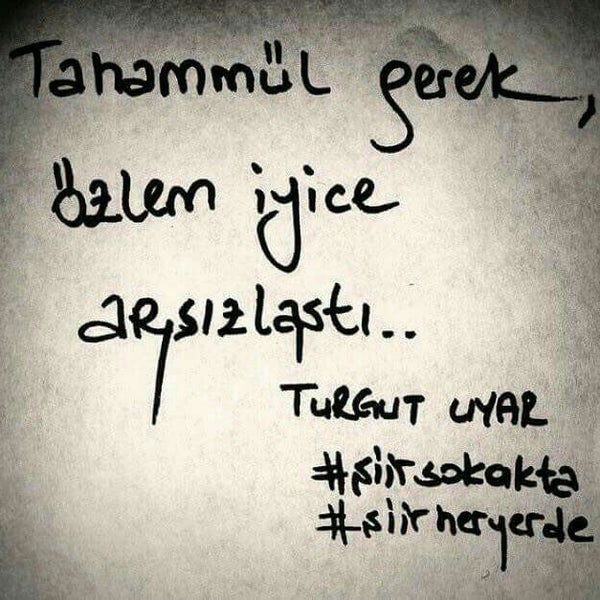 Tahammül gerek,
özlem iyice
arsızlaştı..
TURGUT UYAR
#şiirsokakta
#şiirheryerde